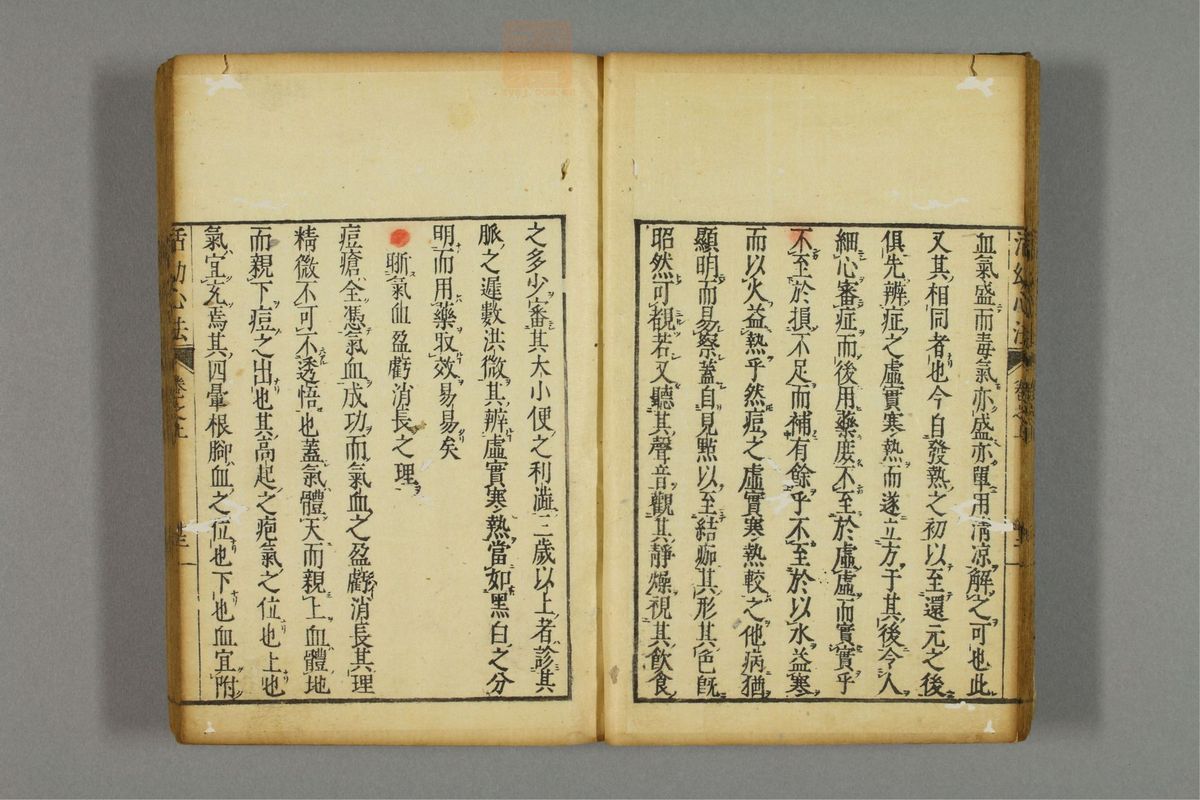 血氣盛而毒氣亦盛亦單用淸凉解之可也此
又其相同者也今自發熱之初以至還元之後
俱先辨症之虛實寒熱而遂立方于其後令人
細心審症而後用藥庻不至於虛虛而實實乎
不至於損不足而補有餘乎不至於以水益寒
而以火益熱乎然痘之虛實寒熱較之他病猶
顯明而易察蓋自見㸃以至結痂其形其色旣
昭然可覩若又聽其聲音觀其靜燥視其飲食
之多少審其大小便之利澁三歲以上者診其
脈之遲數洪微其辨虛實寒熱當如黑白之分
明而用藥取效易易矣
晣氣血盈虧消長之理
痘瘡全憑氣血成功而氣血之盈虧消長其理
精微不可不透悟也蓋氣體天而親上血體地
而親下痘之出也其高起之疱氣之位也上也
氣宜充焉其四暈根腳血之位也下也血宜附
活幼心法
卷之上